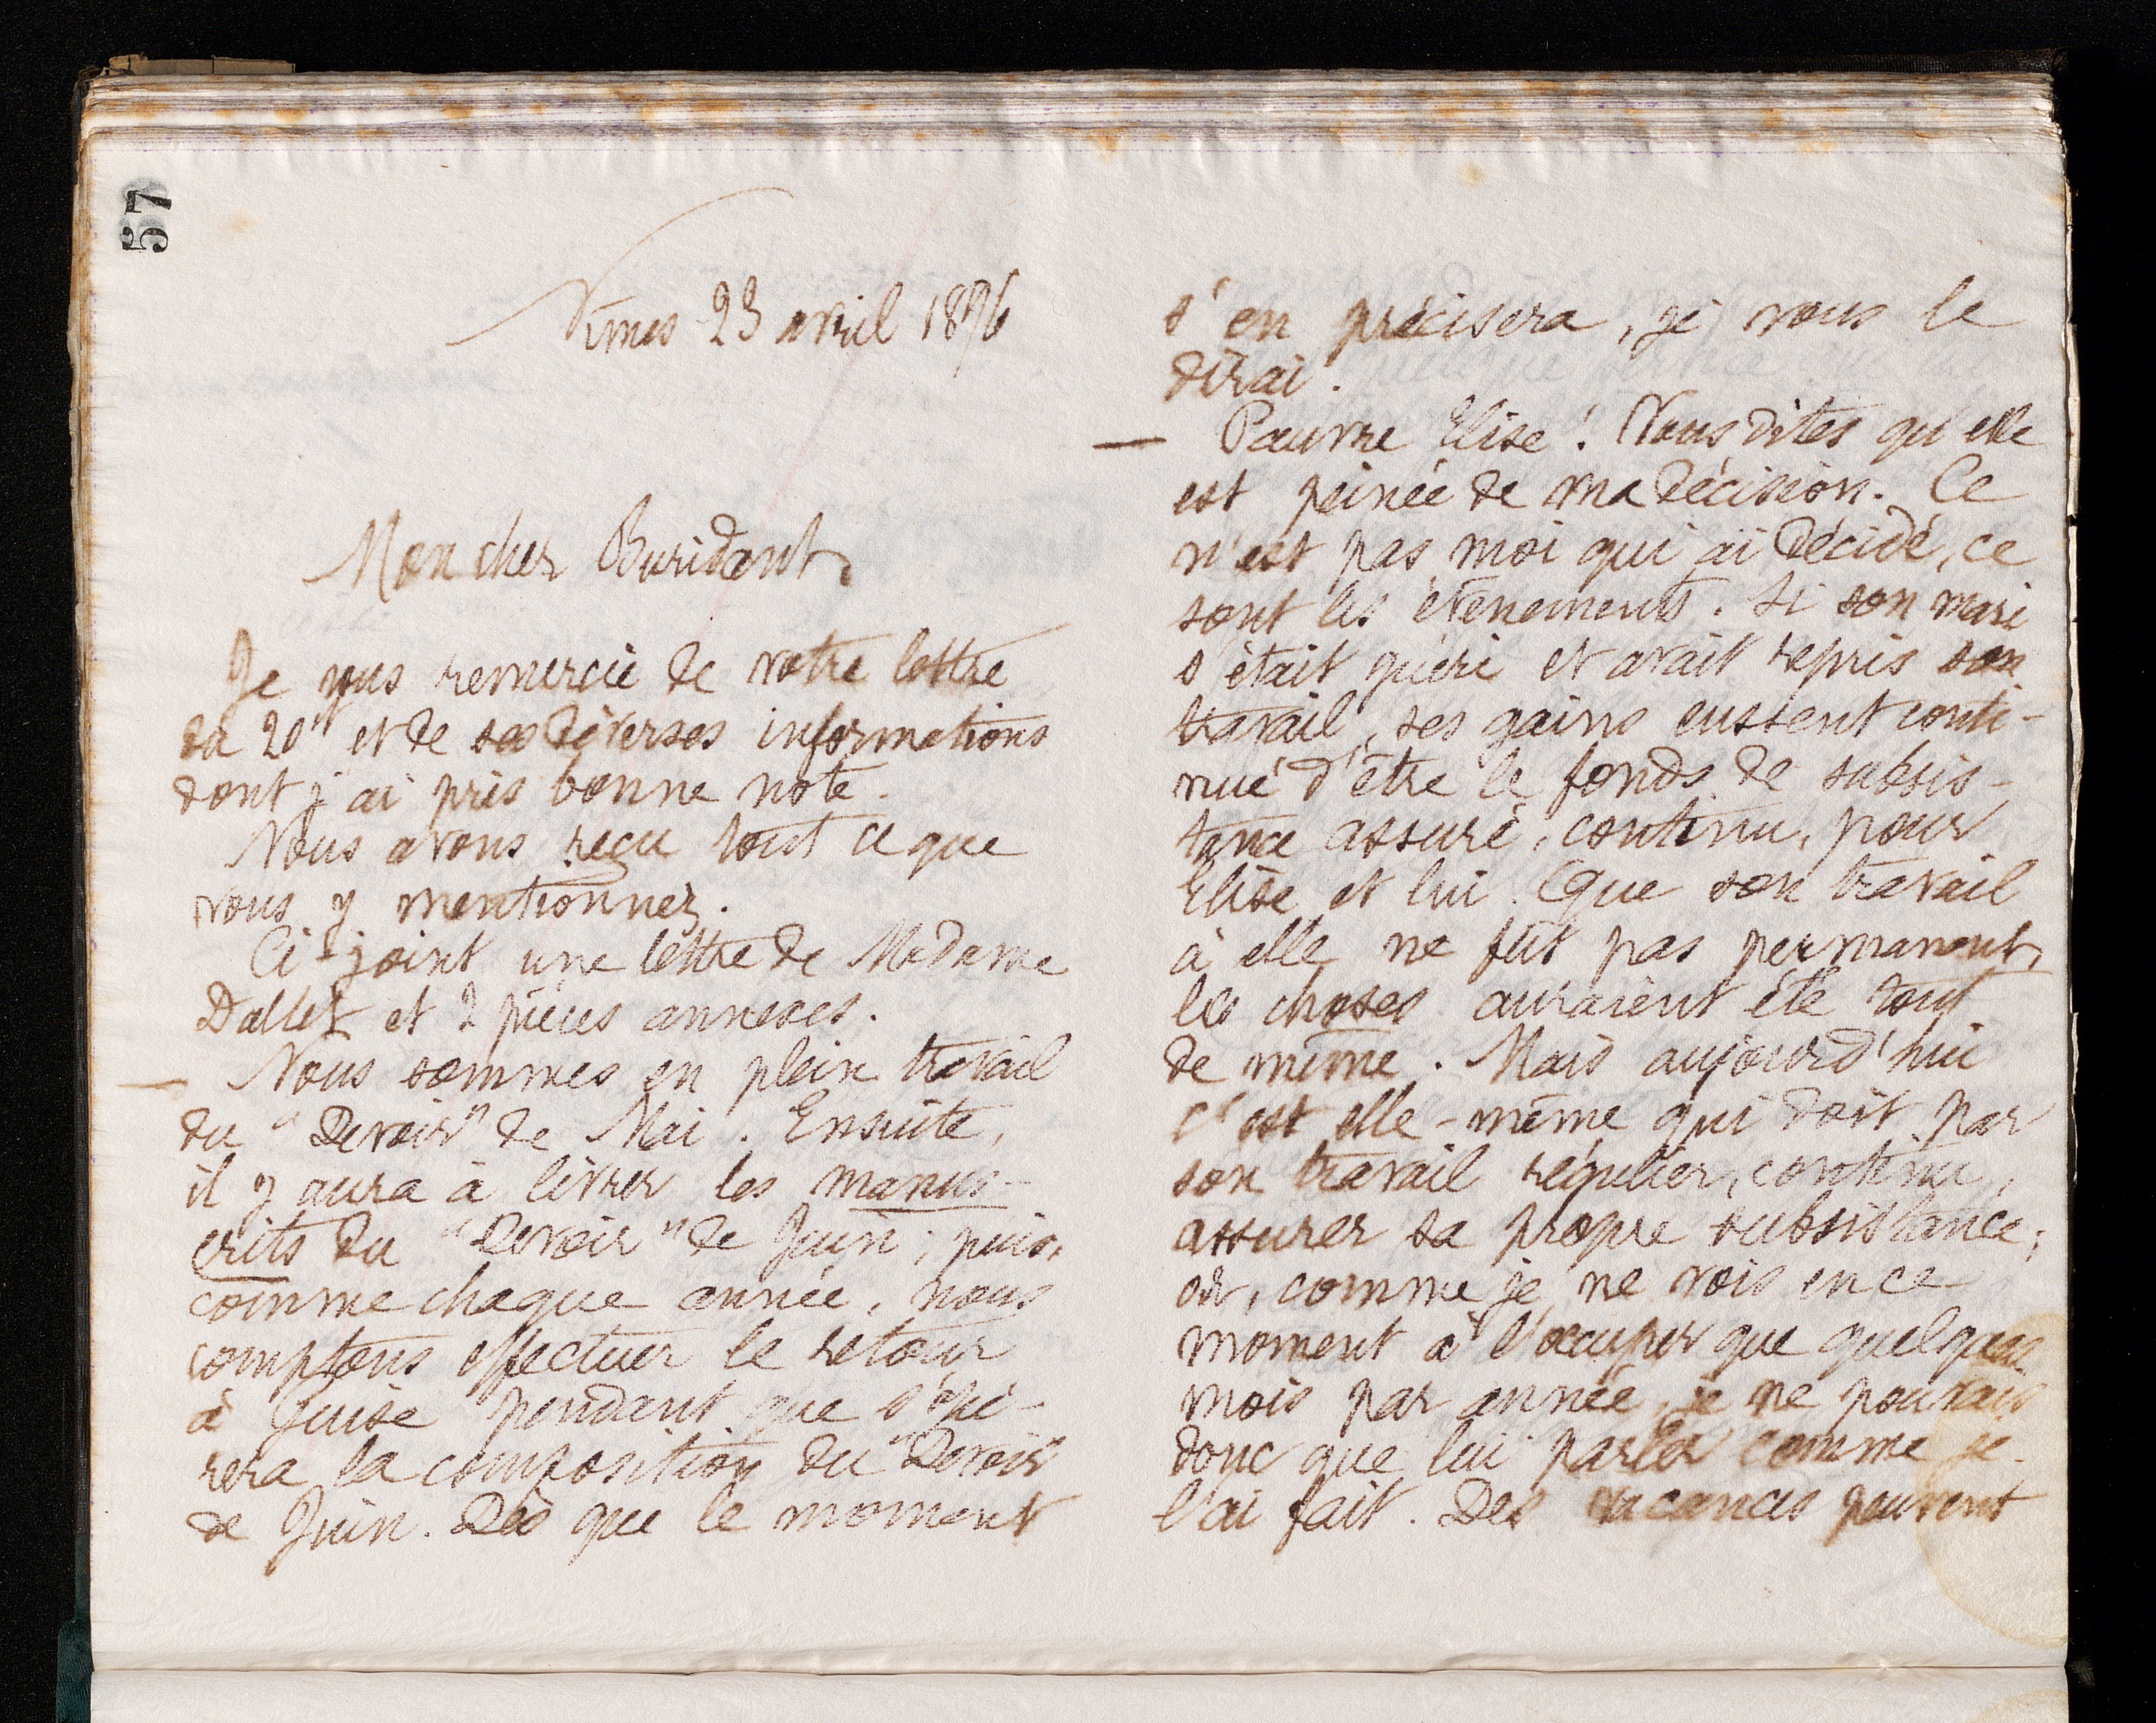 57
Nîmes 23 avril 1896
Mon cher Buridant,
Je vous remercie de votre lettre
du 20 et de ses diverses informations
dont j'ai pris bonne note.
Nous avons reçu tout ce que
vous y mentionnez.
Ci-joint une lettre de Madame
Dallet et 2 pièces annexes.
— Nous sommes en plein travail
du "Devoir" de Mai. Ensuite,
il y aura à livrer les manus-
crits du "Devoir" de Juin; puis,
comme chaque année, nous
comptons effectuer le retour
à Guise pendant que s'opé-
rera la composition du "Devoir"
de Juin. Dès que le moment
s'en précisera, je vous le
dirai.
— Pauvre Elise! Vous dites qu'elle
est peinée de ma décision. Ce
n'est pas moi qui ai décidé, ce
sont les événements. Si son mari
s'était guéri et avait repris son
travail, ses gains eussent conti-
nué d'être le fonds de subsis-
tance assuré, continu, pour
Elise et lui. Que son travail
à elle ne fût pas permanent,
les choses auraient été tout
de même. Mais aujourd'hui
c'est elle-même qui doit par
son travail régulier, continu,
assurer sa propre subsistance;
or, comme je ne vois en ce
moment à l'occuper que quelques
mois par année, je ne pouvais
donc que lui parler comme je
l'ai fait. Des vacances peuvent